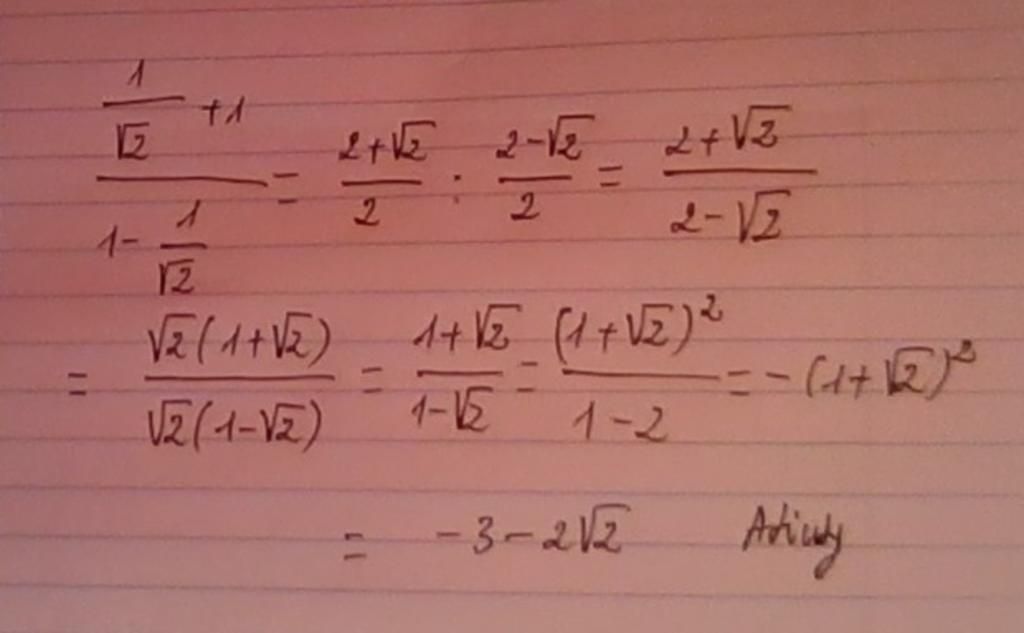 \frac{\frac{1}{\sqrt{2}}+1}{1-\frac{1}{\sqrt{2}}} = \frac{2+\sqrt{2}}{2} : \frac{2-\sqrt{2}}{2} = \frac{2+\sqrt{2}}{2-\sqrt{2}}
= \frac{\sqrt{2}(1+\sqrt{2})}{\sqrt{2}(1-\sqrt{2})} = \frac{1+\sqrt{2}}{1-\sqrt{2}} = \frac{(1+\sqrt{2})^2}{1-2} = -(1+\sqrt{2})^2
= -3-2\sqrt{2}